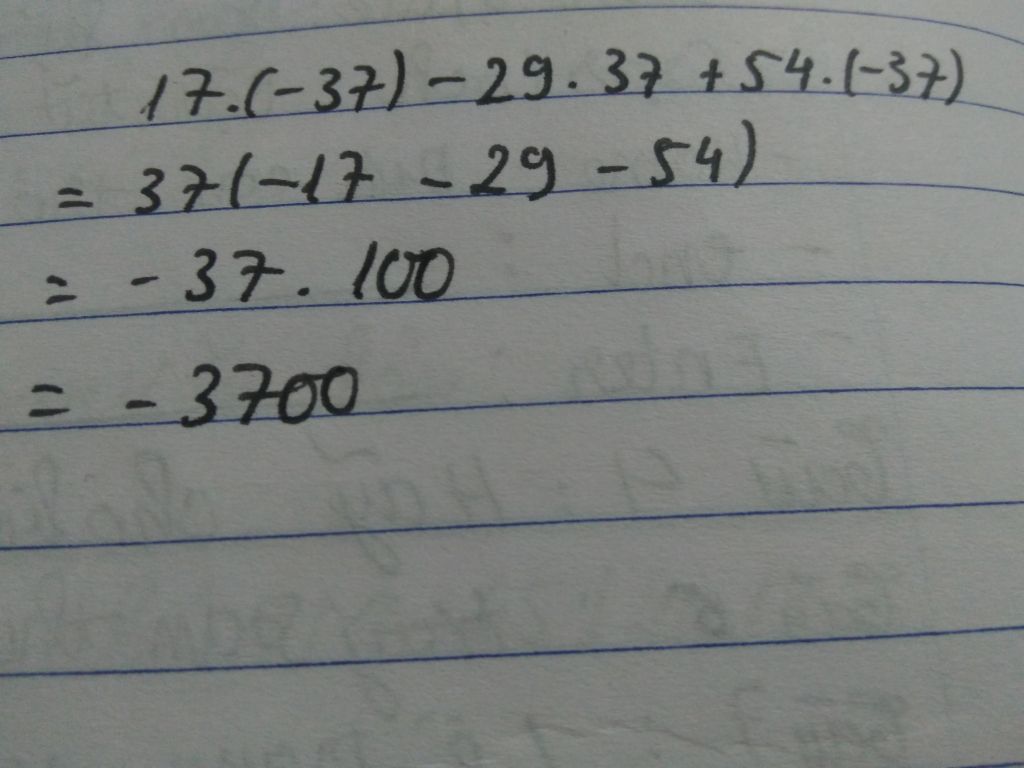 17.(-37) - 29.37 + 54.(-37)
= 37(-17 - 29 - 54)
= - 37.100
= - 3700